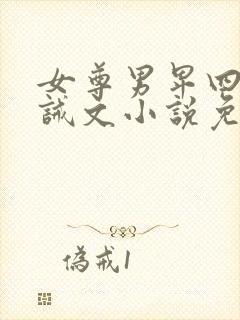 女尊男卑四
誡文小説免
偽戒1